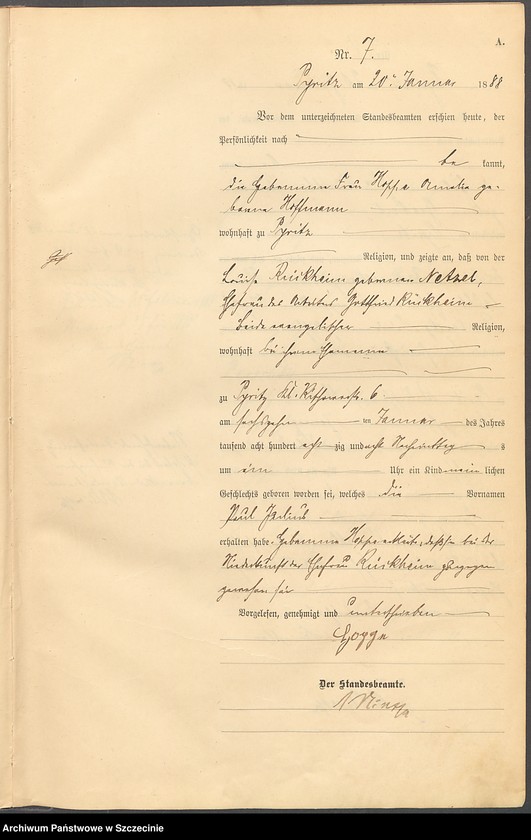 A.
Nr. 7.
Pyritz am 20. Januar 1888
Vor dem unterzeichneten Standesbeamten erschien heute, der
Persönlichkeit nach
be kannt,
die Hebamme Frau Hoppe Amalie ge-
borene Hoffmann
wohnhaft zu Pyritz
Religion, und zeigte an, daß von der
Louise Rückheim geborenen Netzel,
Ehefrau des Arbeiters Gottfried Rückheim
beide evangelischer Religion,
wohnhaft bei ihrem Ehemanne
zu Pyritz Kl. 6
am sechszehn ten Januar des Jahres
tausend acht hundert acht zig und acht Nachmittag s
um ein Uhr ein Kind männ lichen
Geschlechts geboren worden sei, welches die Vornamen
Paul Julius
erhalten habe. Hebamme Hoppe erklärte, daß sie bei der
Niederkunft der Ehefrau Rückheim zugegen
gewesen sei
Vorgelesen, genehmigt und unterschrieben
Hoppe
Der Standesbeamte.
Archiwum Państwowe w Szczecinie